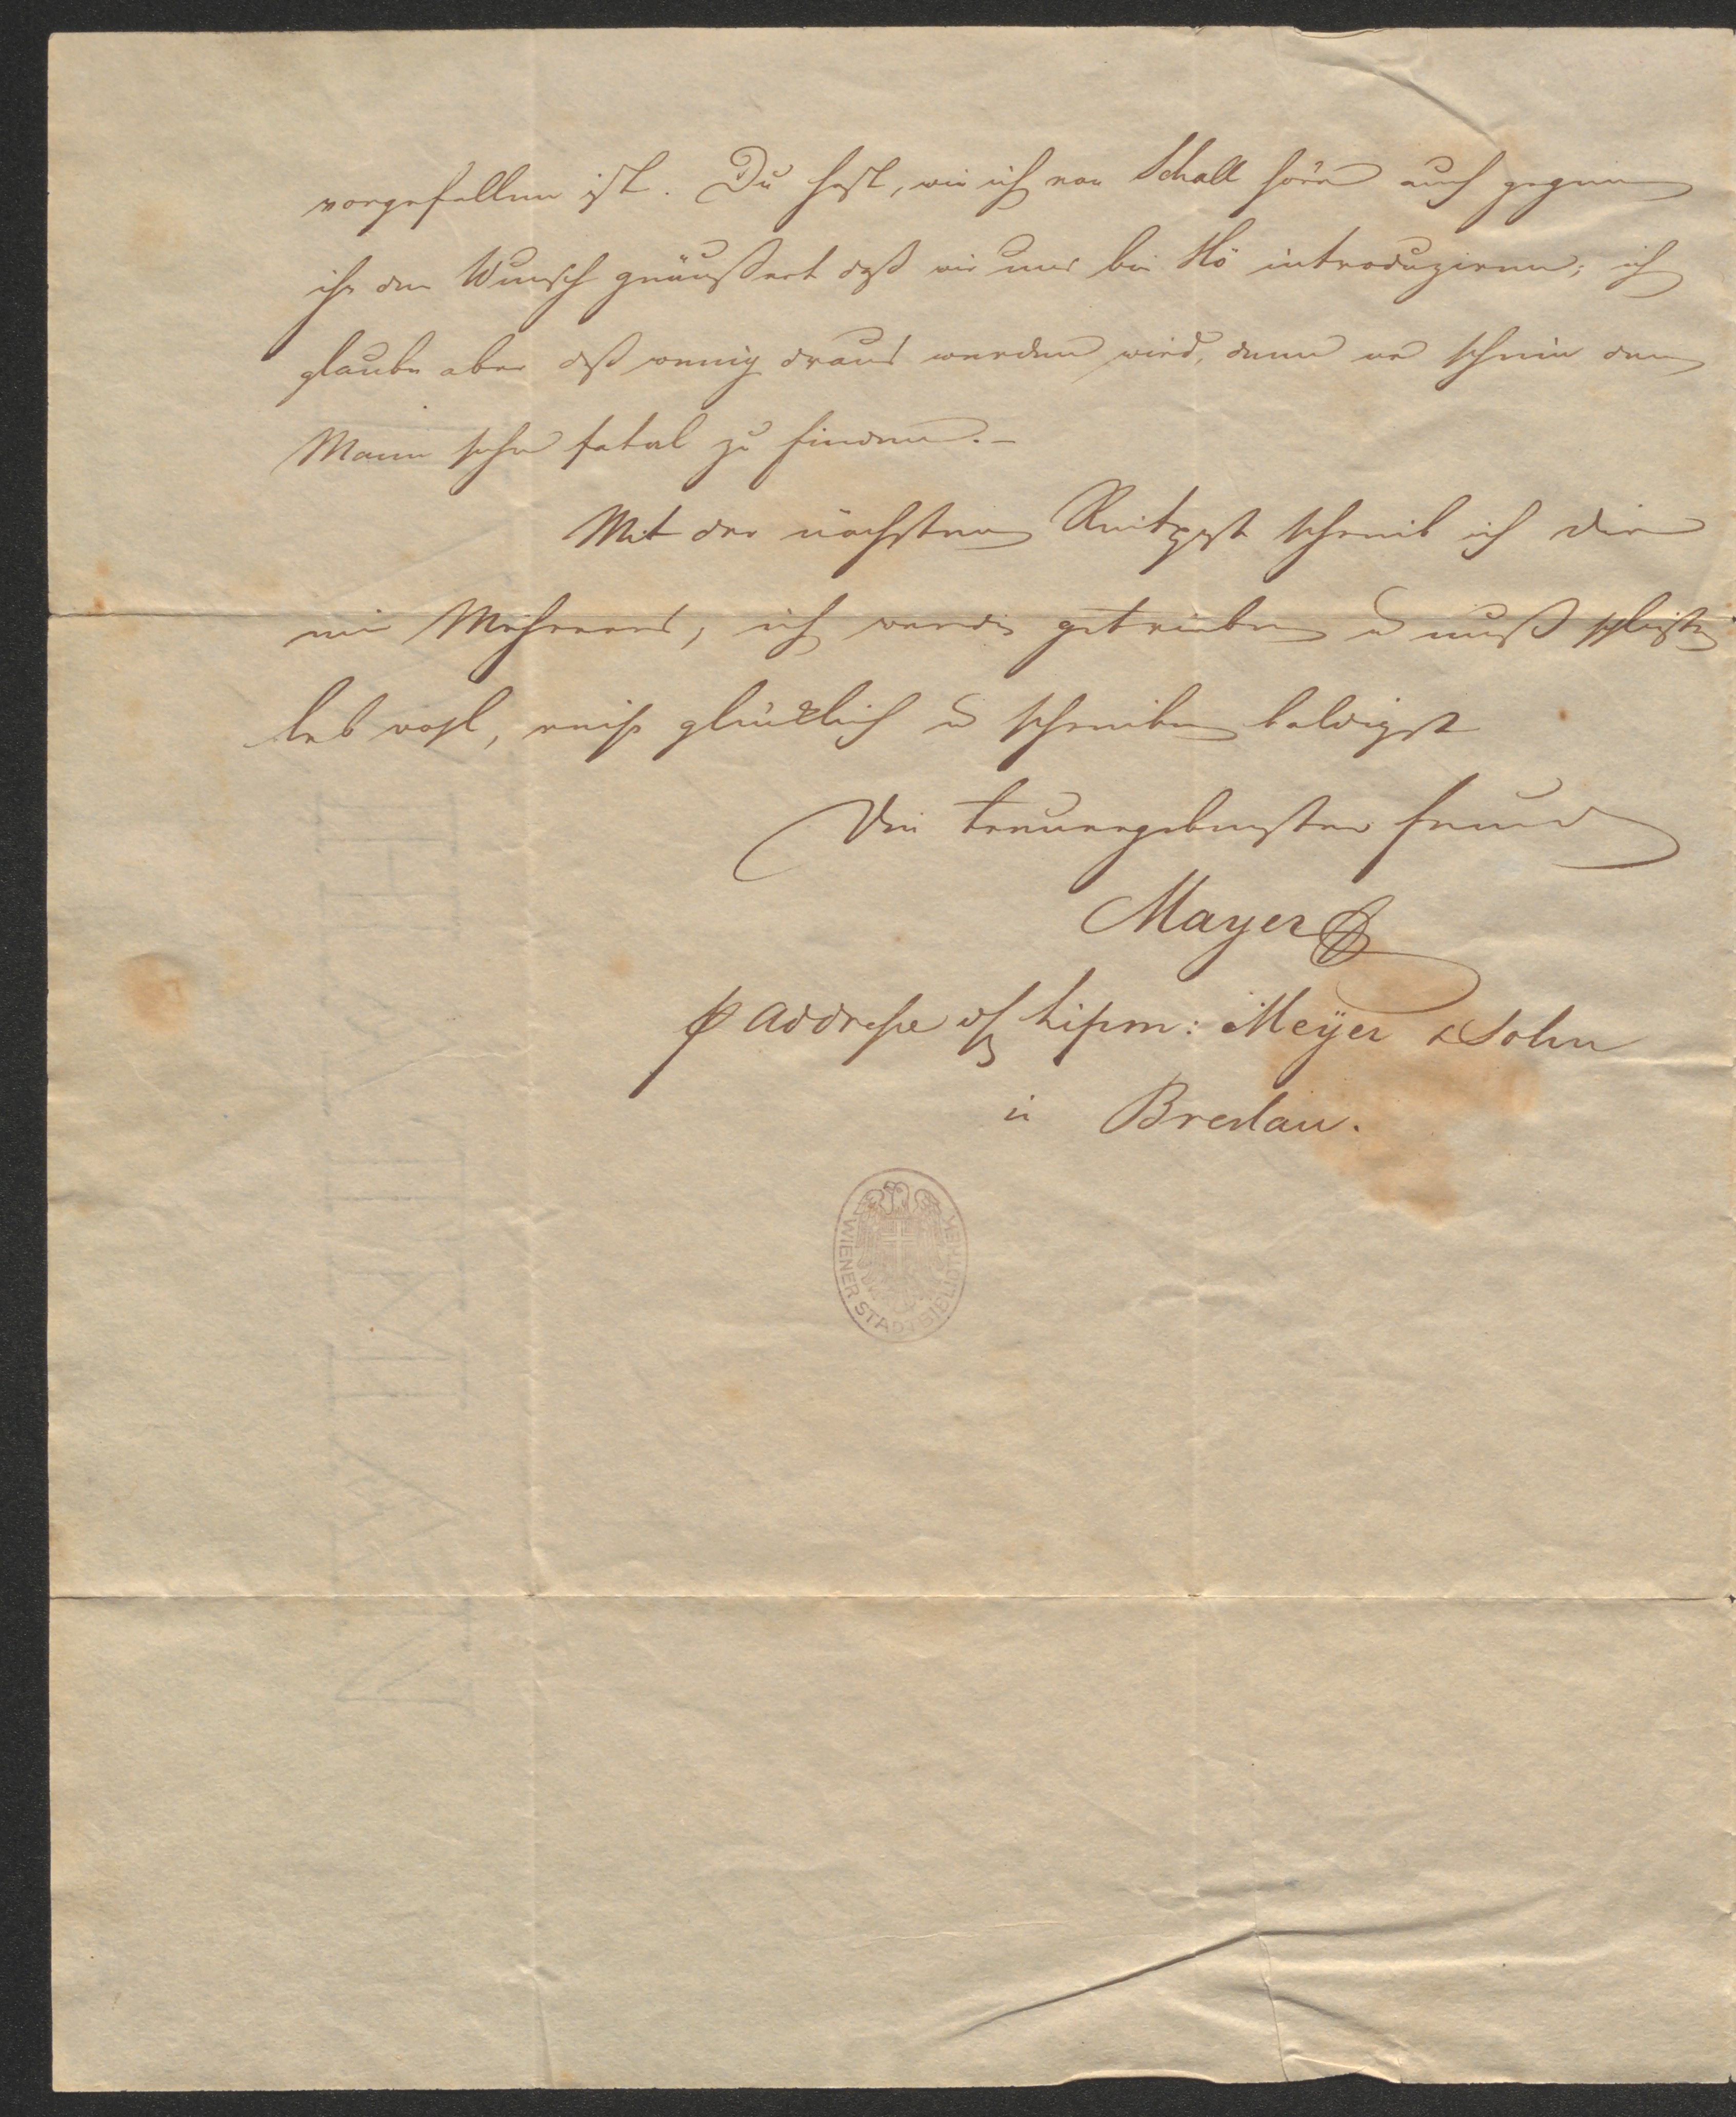 vorgefallen ist. Du hast, wie ich von Schall höre auch gegen
ihn den Wunsch geäußert daß wir uns bei Hö introduziren; ich
glaube aber daß wenig draus werden wird, denn er scheint den
Mann sehr fatal zu finden.–
Mit der nächsten Reitpost schreib ich Dir
ein Mehreres, ich werde getrieben u muß schließen
leb wohl, reise glücklich u schreibe baldigst
Dein treuergebenster Freund
Mayer
p Addresse H Lipm: Meyer & Sohn
in Breslau.
WIENER STADTBIBLIOTHEK